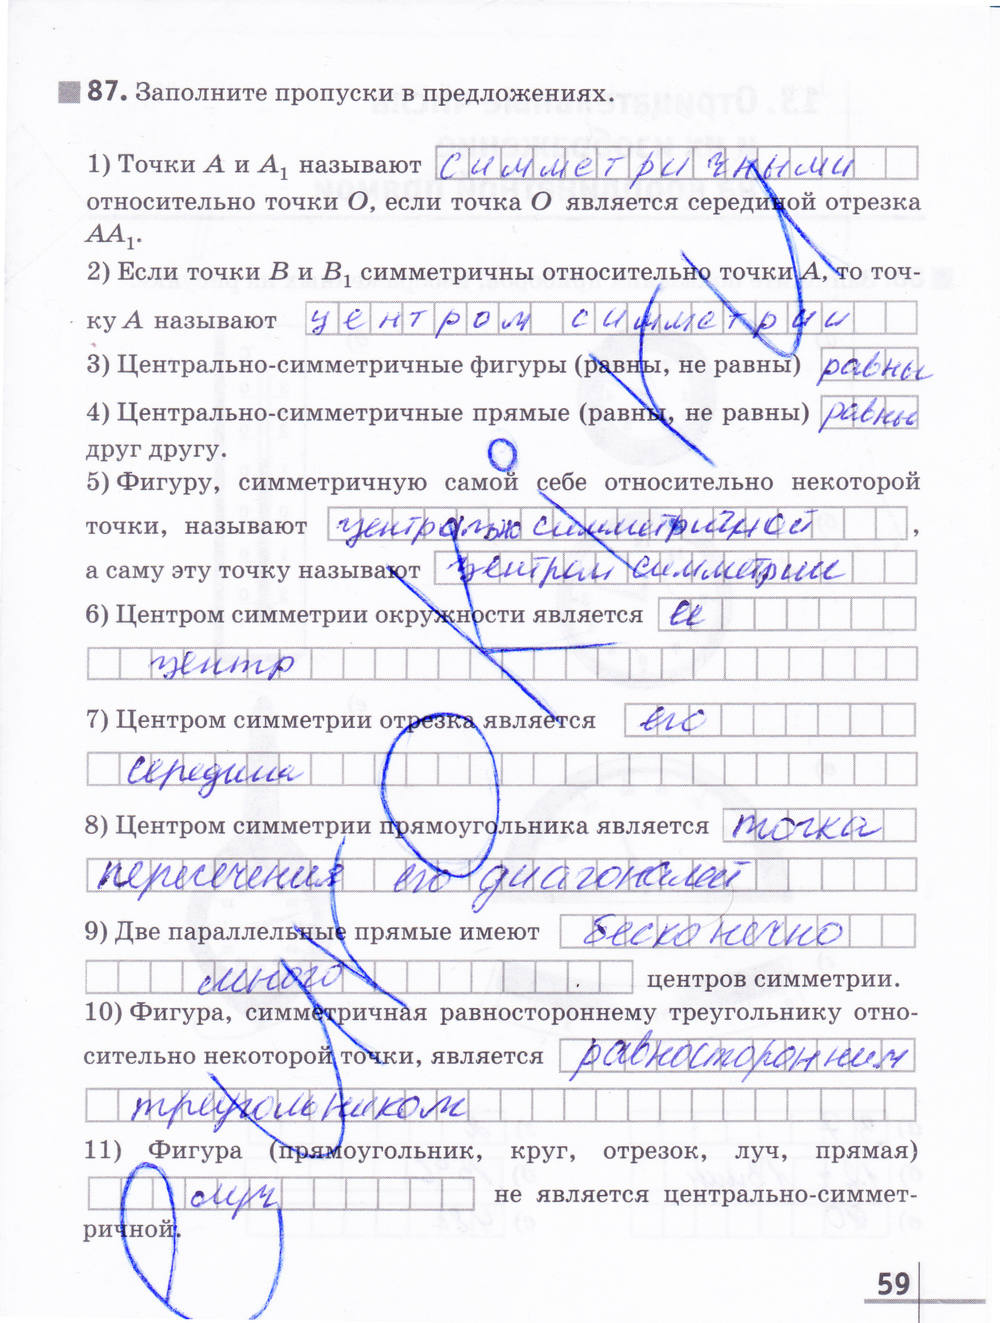 87. Заполните пропуски в предложениях.
1) Точки A и A₁ называют симметричными
относительно точки O, если точка O является серединой отрезка
AA₁.
2) Если точки B и B₁ симметричны относительно точки A, то точ-
ку A называют центром симметрии
3) Центрально-симметричные фигуры (равны, не равны) равны
4) Центрально-симметричные прямые (равны, не равны) равны
друг другу.
5) Фигуру, симметричную самой себе относительно некоторой
точки, называют центрально симметричной ,
а саму эту точку называют центром симметрии
6) Центром симметрии окружности является её
центр
7) Центром симметрии отрезка является его
середина
8) Центром симметрии прямоугольника является точка
пересечения его диагоналей
9) Две параллельные прямые имеют бесконечно
много центров симметрии.
10) Фигура, симметричная равностороннему треугольнику отно-
сительно некоторой точки, является равносторонним
треугольником
11) Фигура (прямоугольник, круг, отрезок, луч, прямая)
луч не является центрально-симмет-
ричной.
59